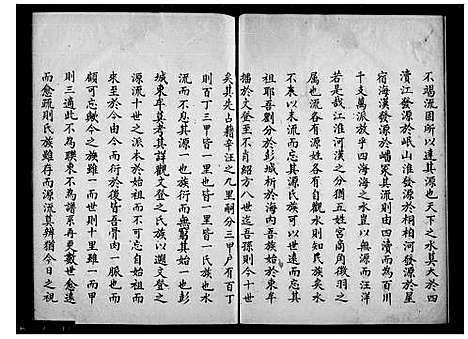 不竭流固所以達其源也天下之水莫大於四
瀆江發源於岷山淮發源於桐柏河發源於星
宿海漢發源於嶓冢其流則由四瀆而為百川
千支萬派放乎四海海之水豈以無源而汪洋
若是哉江淮河漢之分猶五姓宮商角徵羽之
属也流各有源姓各有自觀水則知民族矣水
不衰以末流而忘其源氏族可以世遠而忘其
祖耶吾劉分於彭城析於海內吾族始於東牟
播於文登至不肖紹八世迄吾孫則今十世
矣其先占籍辛汪之九里嗣分三甲户有百丁
則百丁三甲皆一里也皆一里皆一氏族也水
流而不忘其源一也族衍而無窮其始一也彭
城東牟莫考其詳觀文登之氏族以遡文登之
源流十世之派本於始祖而不可忘自始祖而
來至於今由今而衍於後皆吾骨肉一脈也而
顧可忘歟今之族離一而世則十里離一而甲
則三過此不為聯東不為譜萃再更數世愈遠
而愈疏則氏族雖存而源流莫辨猶今日之視